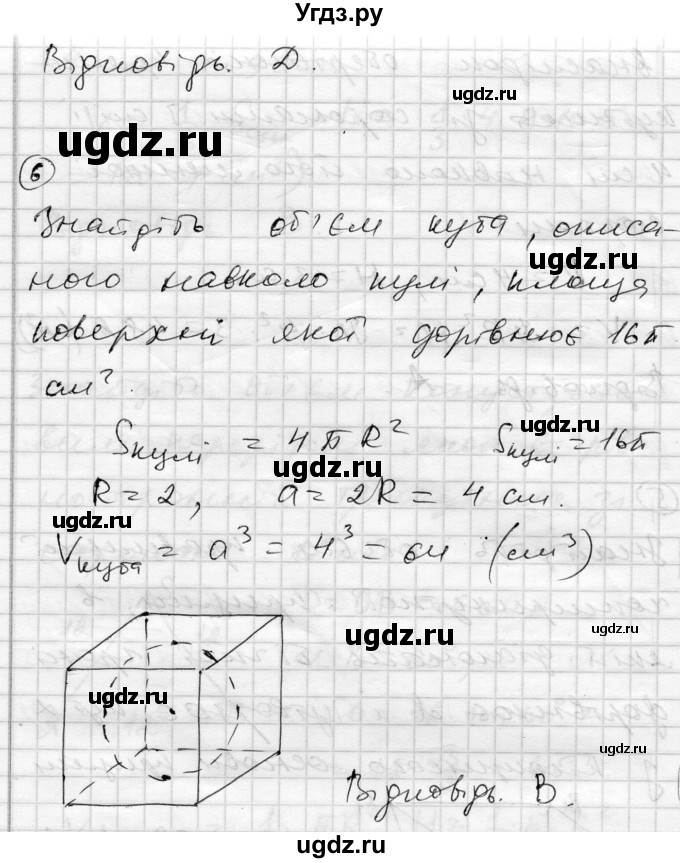 Угдз.ру
Відповідь. D.
ugdz.ru
ugdz.ru
6
Знайдіть об'єм куба, описа-
ugdz.ru
ного навколо кулі, площа
поверхні якої дорівнює 16π
см².
Sкулі = 4πR² Sкулі = 16π
ugdz.ru
ugdz.ru
R = 2, a = 2R = 4 см.
ugdz.ru
Vкуба = a³ = 4³ = 64 (см³)
ugdz.ru
ugdz.ru
ugdz.ru
Відповідь. В.
ugdz.ru